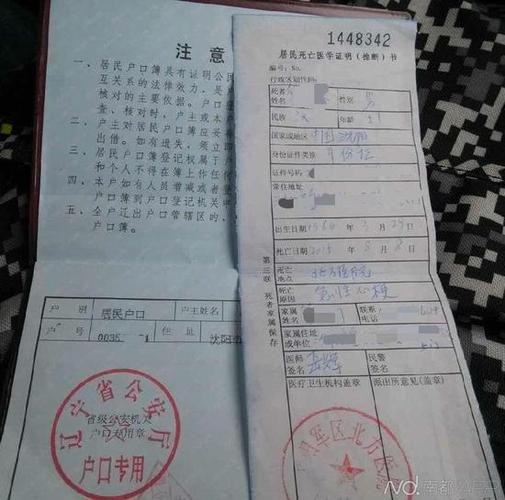 注意
一、居民户口簿具有证明公民
互关系的法律效力,是
核对的主要依据。户口登
查、核对时,户主或本户
二、户主对居民户口簿应妥
出借。如有遗失,须立即
三、居民户口簿登记权属于户
和个人不得在簿上作任何
四、本户如有人员增减或者
口簿到户口登记机关申
五、全户迁出户口管辖区的,
户口簿。
户别 居民户口 户主姓名
户号 0035 1 住址 沈阳市
辽宁省公安厅
省级公安机关
户口专用章
户口专用
1448342
居民死亡医学证明(推断)书
编号:No.
行政区划代码:
死者姓名 性别 男
民族 汉 年龄 51
国家或地区 中国沈阳
身份证件类接 身份证
证件号码
常住地址
出生日期 1964 年 3 月 29 日
死亡日期 2015 年 8 月 8 日
死亡地点
死亡原因 急性心梗
家属姓名 联系电话
家属住址或单位
医师签名 民警签名
医疗卫生机构盖章 派出所意见(盖章)
第三联 死者家属保存
军区北方医
南都 APP